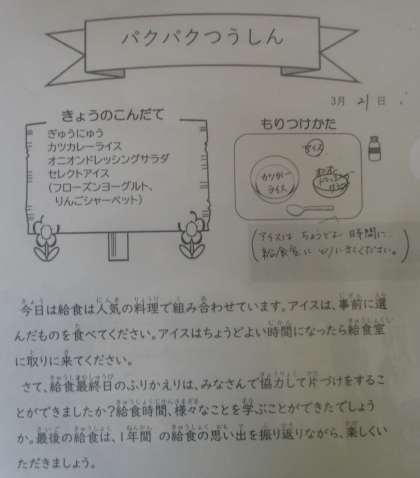 パクパクつうしん
3月 21日
きょうのこんだて
ぎゅうにゅう
カツカレーライス
オニオンドレッシングサラダ
セレクトアイス
(フローズンヨーグルト、
りんごシャーベット)
もりつけかた
アイス
カツカレー
ライス
(アイスは ちょうどよい 時間に
給食室に とりにきてください。)
今日は給食は人気の料理で組み合わせています。アイスは、事前に選
んだものを食べてください。アイスはちょうどよい時間になったら給食室
に取りに来てください。
さて、給食最終日のふりかえりは、みなさんで協力して片づけをするこ
とができましたか?給食時間、様々なことを学ぶことができたでしょう
か。最後の給食は、1年間 の給食の思い出を振り返りながら、楽しくい
ただきましょう。